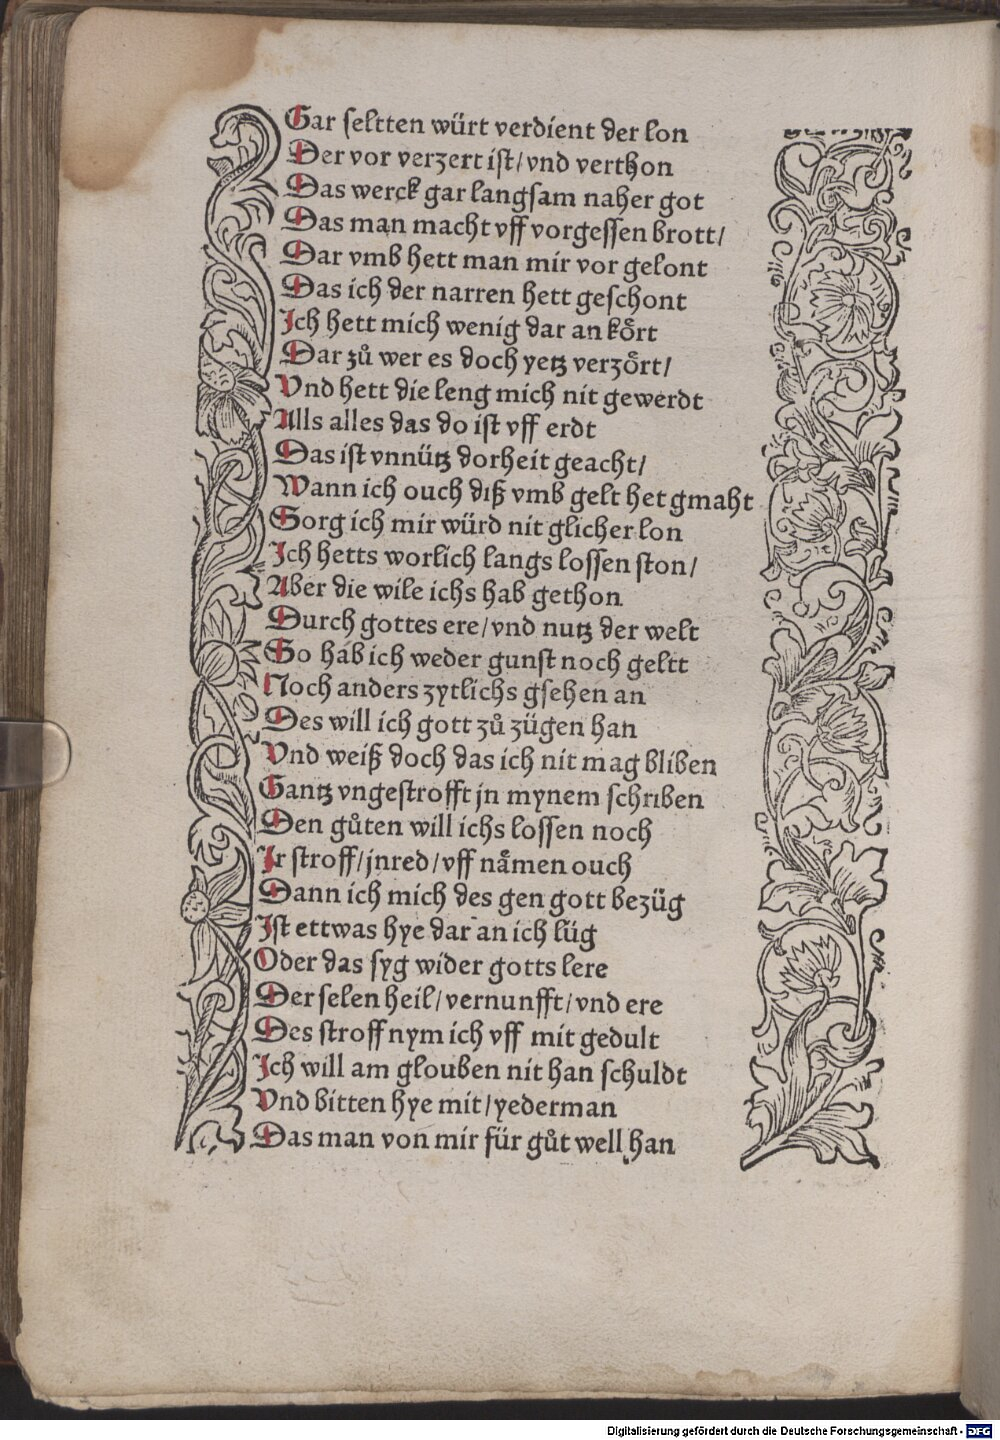 Gar seltten würt verdient der lon
Der vor verzert ist/ vnd verthon
Das werck gar langsam naher got
Das man macht vff vorgessen brott/
Dar vmb hett man mir vor gelont
Das ich der narren hett geschont
Ich hett mich wenig dar an koͤrt
Dar zuͦ wer es doch yetz verzoͤrt/
Vnd hett die leng mich nit gewerdt
Alls alles das do ist vff erdt
Das ist vnnütz dorheit geacht/
Wann ich ouch diß vmb gelt het gmaht
Sorg ich mir würd nit glicher lon
Ich hetts worlich langs lossen ston/
Aber die wile ichs hab gethon
Durch gottes ere/ vnd nutz der welt
So hab ich weder gunst noch geltt
Noch anders zytlichs gsehen an
Des will ich gott zuͦ zügen han
Vnd weiß doch das ich nit mag bliben
Gantz vngestrofft jn mynem schriben
Den guͦten will ichs lossen noch
Ir stroff/ jnred/ vff naͤmen ouch
Dann ich mich des gen gott bezüg
Ist ettwas hye dar an ich lüg
Oder das syg wider gotts lere
Der selen heil/ vernunfft/ vnd ere
Des stroff nym ich vff mit gedult
Ich will am glouben nit han schuldt
Vnd bitten hye mit/ yederman
Das man von mir für guͦt well han
Digitalisierung gefördert durch die Deutsche Forschungsgemeinschaft - DFG